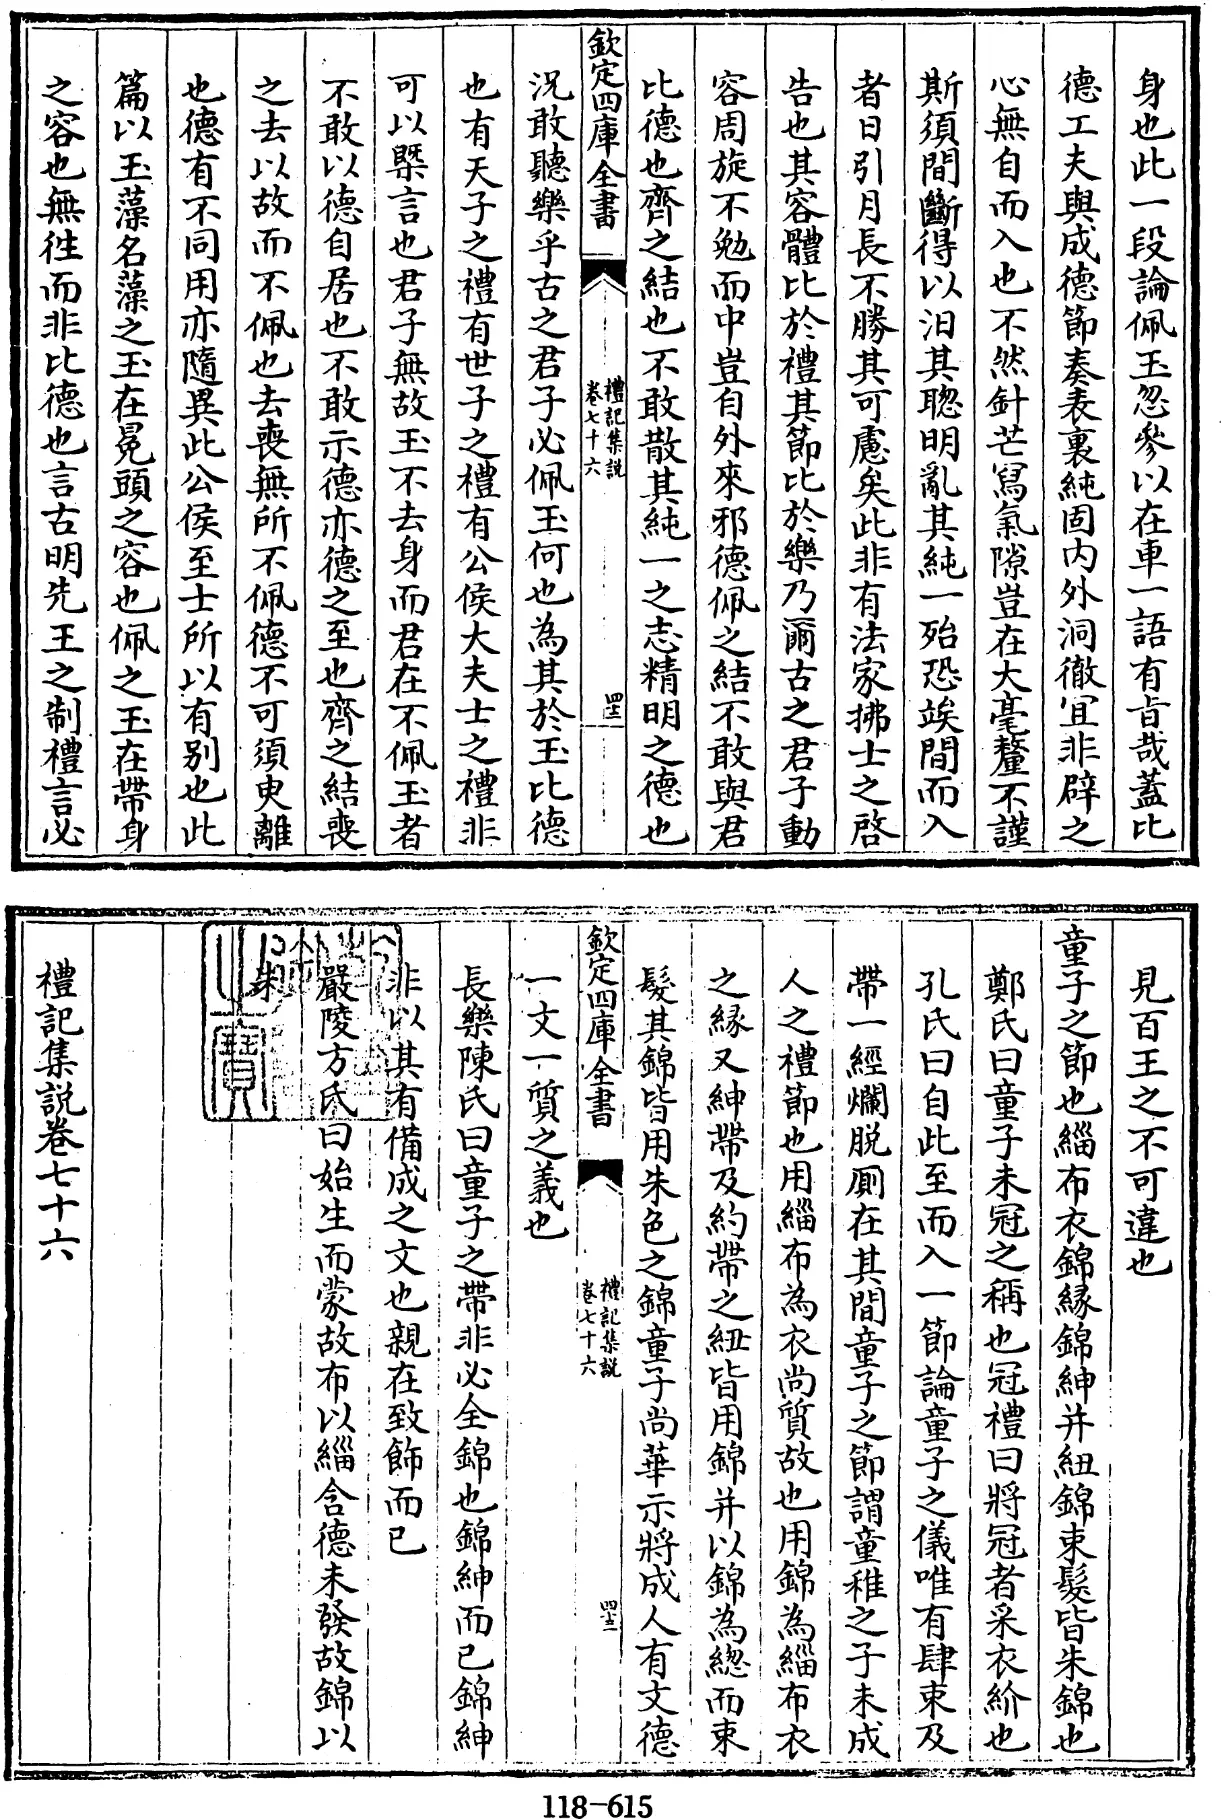 身也此一段論佩玉忽參以在車一語有㫖哉蓋比
德工夫與成德節奏表裏純固内外洞徹宜非辟之
心無自而入也不然針芒冩氣隙豈在大毫釐不謹
斯須間斷得以汩其聰明亂其純一殆恐竢間而入
者日引月長不勝其可慮矣此非有法家拂士之啓
告也其容體比於禮其節比於樂乃爾古之君子動
容周旋不勉而中豈自外來邪德佩之結不敢與君
比德也齊之結也不敢散其純一之志精明之德也
欽定四庫全書 禮記集説 卷七十六 四十二
況敢聽樂乎古之君子必佩玉何也為其於玉比德
也有天子之禮有世子之禮有公侯大夫士之禮非
可以槩言也君子無故玉不去身而君在不佩玉者
不敢以德自居也不敢示德亦德之至也齊之結喪
之去以故而不佩也去喪無所不佩德不可須臾離
也德有不同用亦隨異此公侯至士所以有别也此
篇以玉藻名藻之玉在冕頭之容也佩之玉在帶身
之容也無徃而非比德也言古明先王之制禮言必
見百王之不可違也
童子之節也緇布衣錦緣錦紳并紐錦束髮皆朱錦也
鄭氏曰童子未冠之稱也冠禮曰將冠者采衣紒也
孔氏曰自此至而入一節論童子之儀唯有肆束及
帶一經爛脱厠在其間童子之節謂童稚之子未成
人之禮節也用緇布為衣尚質故也用錦為緇布衣
之縁又紳帶及約帶之紐皆用錦并以錦為緫而束
髮其錦皆用朱色之錦童子尚華示將成人有文德
欽定四庫全書 禮記集説 卷七十六 四十三
一文一質之義也
長樂陳氏曰童子之帶非必全錦也錦紳而已錦紳
非以其有備成之文也親在致飾而已
嚴陵方氏曰始生而蒙故布以緇含德未發故錦以
朱
禮記集説卷七十六
118-615